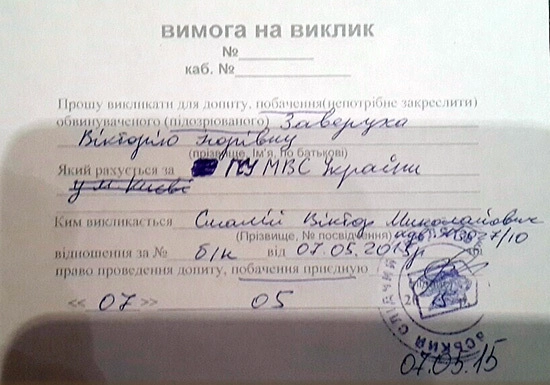 ВИМОГА НА ВИКЛИК
№
каб. №
Прошу викликати для допиту, побачення(непотрібне закреслити)
обвинуваченого (підозрюваного) Заверуха
Вікторію Ігорівну
(прізвище, Ім'я, по батькові)
Який рахується за ГУ МВС України
у м. Києві
Ким викликається Смалій Віктор Миколайович
(Прізвище, № посвідчення)
відношення за № б/н від 07.05.2015р
право проведення допиту, побачення приєдную
<< 07 >> 05
СЛІДЧИЙ
07.05.15